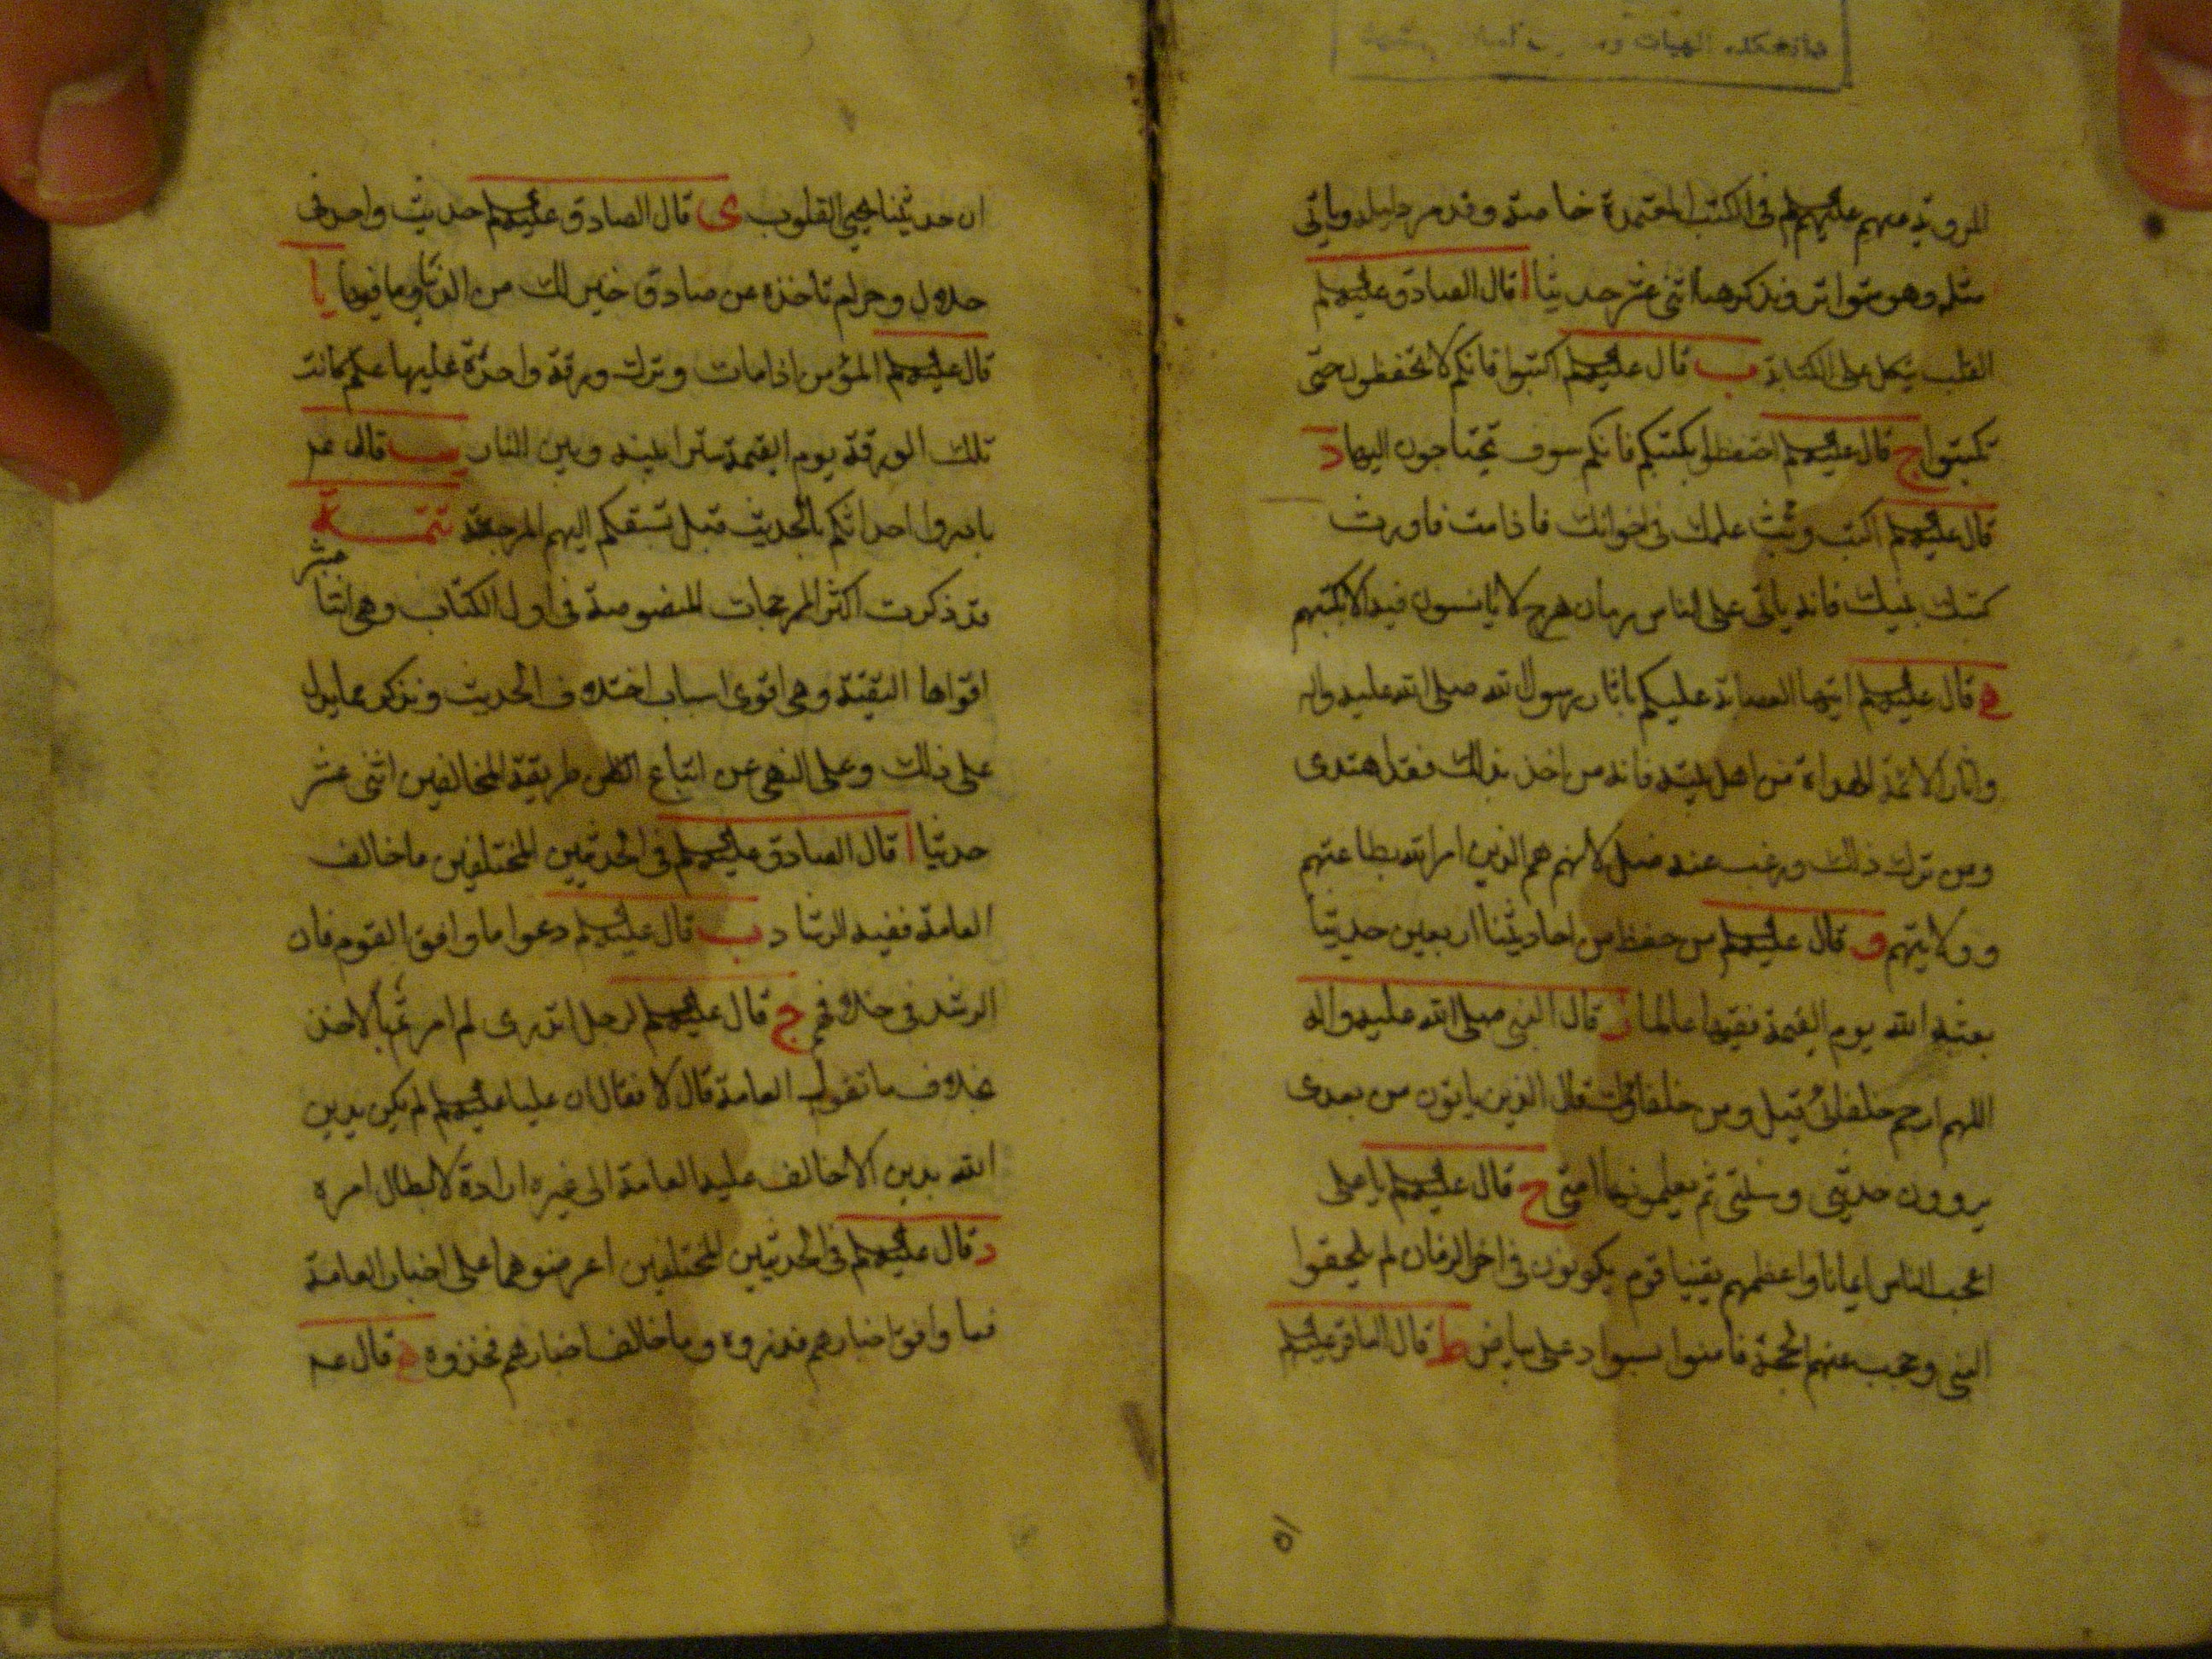 دانشكده الهيات و
المروية عنهم عليهم السلم فى الكتب المعتمدة خاصة وقد مر دليله وياتى
مثله وهو متواتر ونذكر هنا اثنى عشر حديثا ا قال الصادق عليه السلم
القلب يتكل على الكتابة ب قال عليه السلم اكتبوا فانكم لا تحفظون حتى
تكتبوا ج قال عليه السلم احتفظوا بكتبكم فانكم سوف تحتاجون اليها د
قال عليه السلم اكتب وبث علمك فى اخوانك فاذا مت فاورث
كتبك بنيك فانه ياتى على الناس زمان هرج لا يانسون فيه الا بكتبهم
ه قال عليه السلم ايتها العصابة عليكم باثار رسول الله صلى الله عليه واله
واثار الائمة الهداة من اهل بيته فانه من اخذ بذلك فقد اهتدى
ومن ترك ذلك ورغب عنه ضل لانهم هم الذين امر الله بطاعتهم
وولايتهم و قال عليه السلم من حفظ من احاديثنا اربعين حديثا
بعثه الله يوم القيمة فقيها عالما ز قال النبى صلى الله عليه واله
اللهم ارحم خلفائى قيل ومن خلفاؤك قال الذين ياتون من بعدى
يروون حديثى وسنتى ثم يعلمونها امتى ح قال عليه السلم يا على
اعجب الناس ايمانا واعظمهم يقينا قوم يكونون فى اخر الزمان لم يلحقوا
النبى وحجب عنهم الحجة فامنوا بسواد على بياض ط قال الباقر عليه السلم
٥١
ان حديثنا يحيى القلوب ى قال الصادق عليه السلم حديث واحد فى
حلال وحرام تاخذه من صادق خير لك من الدنيا وما فيها يا
قال عليه السلم المؤمن اذا مات وترك ورقة واحدة عليها علم كانت
تلك الورقة يوم القيمة سترا بينه وبين النار يب قال عم
بادروا احداثكم بالحديث قبل ان تسبقكم اليهم المرجئة تتمة
قد ذكرت اكثر المرجحات المنصوصة فى اول الكتاب وهى اثنا عشر
اقواها التقية وهى اقوى اسباب اختلاف الحديث ونذكر مما يدل
على ذلك وعلى النهى عن اتباع طريقة المخالفين اثنى عشر
حديثا ا قال الصادق عليه السلم فى الحديثين المختلفين ما خالف
العامة ففيه الرشاد ب قال عليه السلم دعوا ما وافق القوم فان
الرشد فى خلافهم ج قال عليه السلم لرجل اتدرى لم امرتم بالاخذ
بخلاف ما تقول العامة قال لا فقال ان عليا عليه السلم لم يكن يدين
الله بدين الا خالف عليه العامة الى غيره ارادة لابطال امره
د قال عليه السلم فى الحديثين المختلفين اعرضوهما على اخبار العامة
فما وافق اخبارهم فذروه وما خالف اخبارهم فخذوه ه قال عم